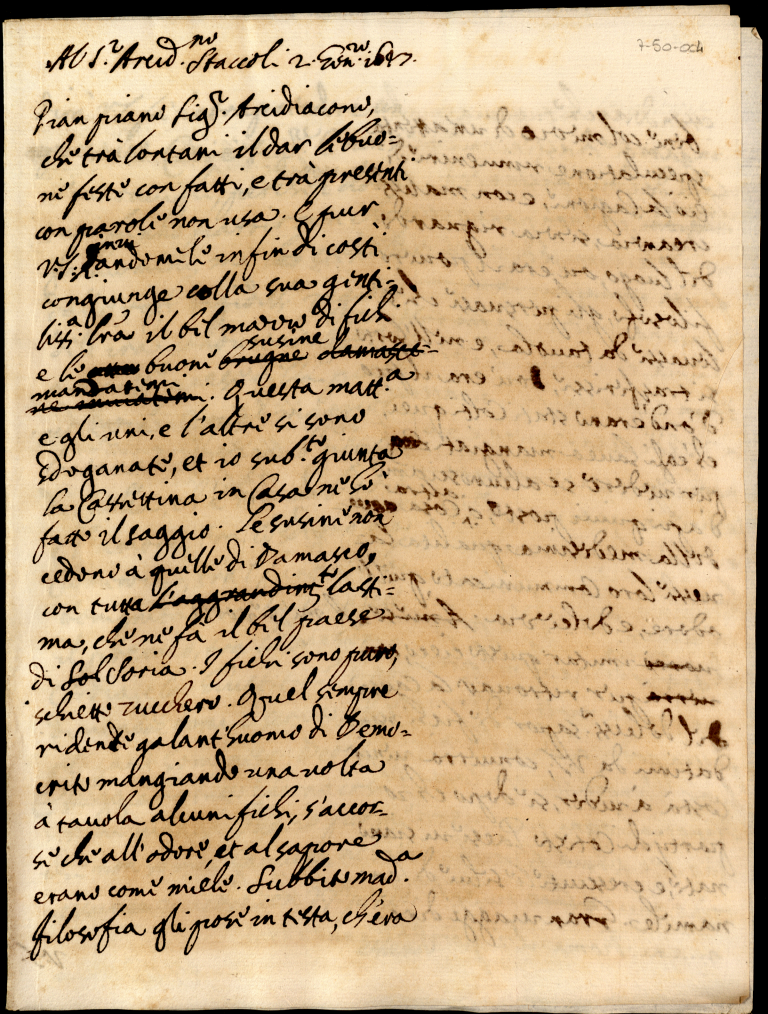 7-50-004
Al S.r Arcid.no Staccoli 2. Gen.ro 1697.
Pian piano Sig.r Arcidiacono,
che trà lontani il dar le buo=
ne feste con fatti, e trà presenti
con parole non usa. E pur
V.S. Ill.ma dandomele infin di costì
congiunge colla sua genti=
liss.a l'rà il bel mazzo di fichi
e le buone susine brugne damasce=
mandatemi
ne mandatemi. Questa matt.a
e gli uni, e l'altre si sono
sdoganate, et io sub.to giunta
la Cassettina in Casa ne hò
fatto il saggio. Le susine non
cedono à quelle di Damasco,
con tutta l'aggrandim.to la sti=
ma, che ne fà il bel paese
di Sol Soria. I fichi sono puro,
schietto zucchero. Quel sempre
ridente galant'huomo di Demo=
crito mangiando una volta
à tavola alcuni fichi, s'accor=
se che all'odore, et al sapore
erano come miele. Subbito mad.a
filosofia gli pose in testa, ch'era